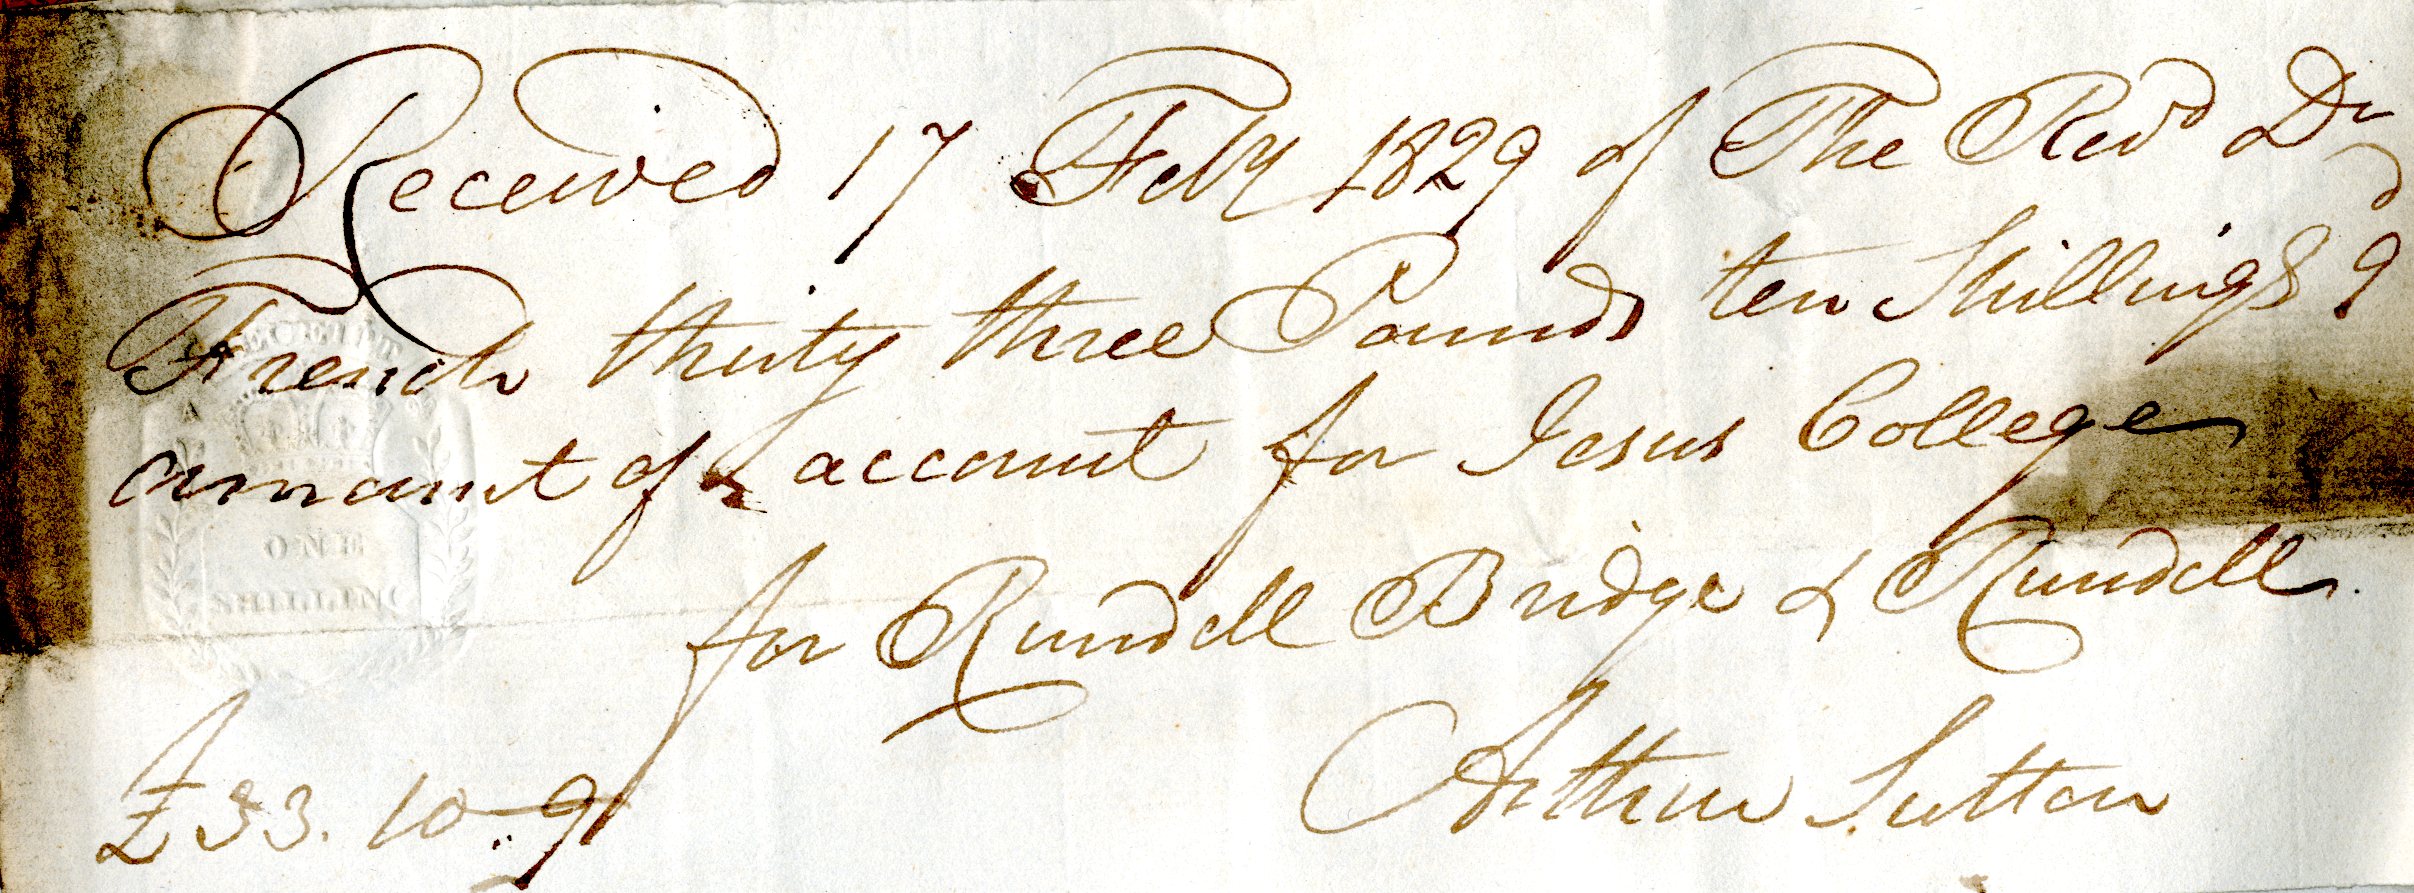 Received 17 Feby 1829 of The Revd Dr
French thirty three Pounds ten Shillings & 9d
amount of account for Jesus College
for Rundell Bridge & Rundell
£33. 10 - 9
Arthur Sutton
RECEIPT
ONE
SHILLING